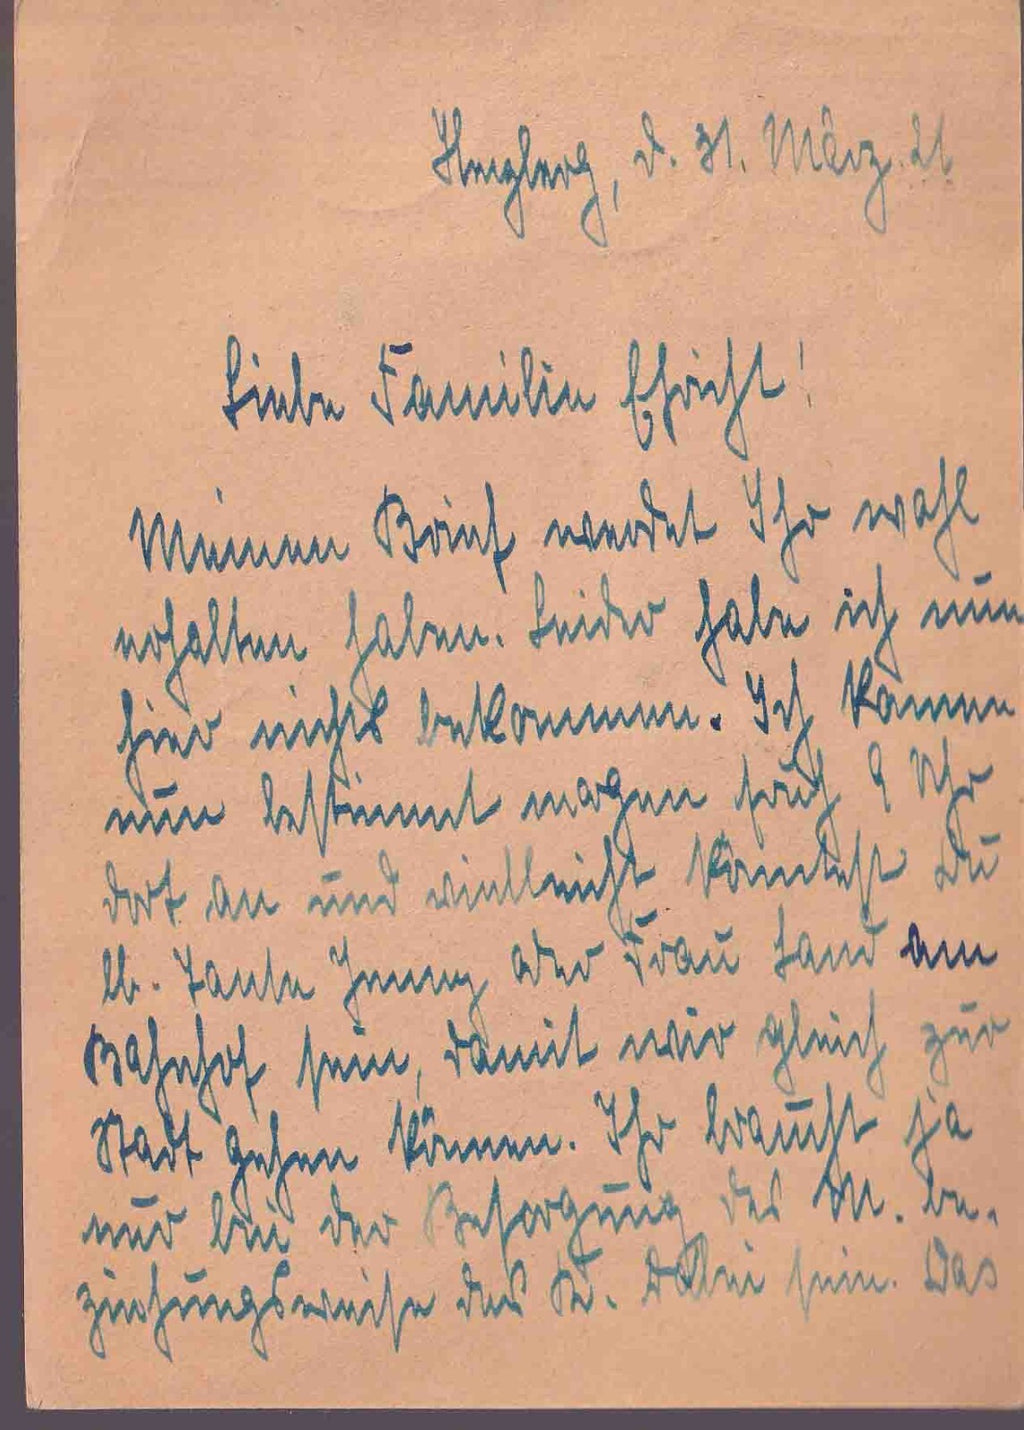 Herzberg, d. 31. März. 21
Liebe Familie Ehricht!
Meinen Brief werdet Ihr wohl
erhalten haben. Leider habe ich nun
hier nichts bekommen. Ich komme
nun bestimmt morgen früh 9 Uhr
dort an und vielleicht könntest Du
lb. Tante Jenny oder Frau Land am
Bahnhof sein, damit wir gleich zur
Stadt gehen können. Ihr braucht ja
nur bei der Besorgung des M. be-
ziehungsweise des K. dabei sein. Das